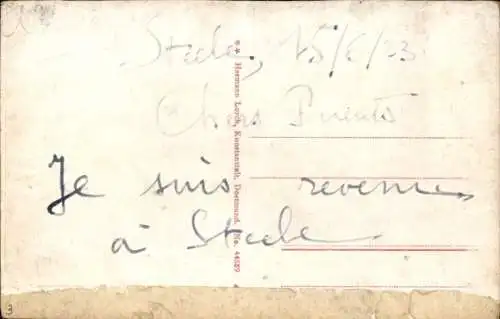 Steele, 15/6/23
Chers Parents
Je suis revenu
à Steele
Hermann Lorch, Kunstanstalt, Dortmund. No. 44529
3